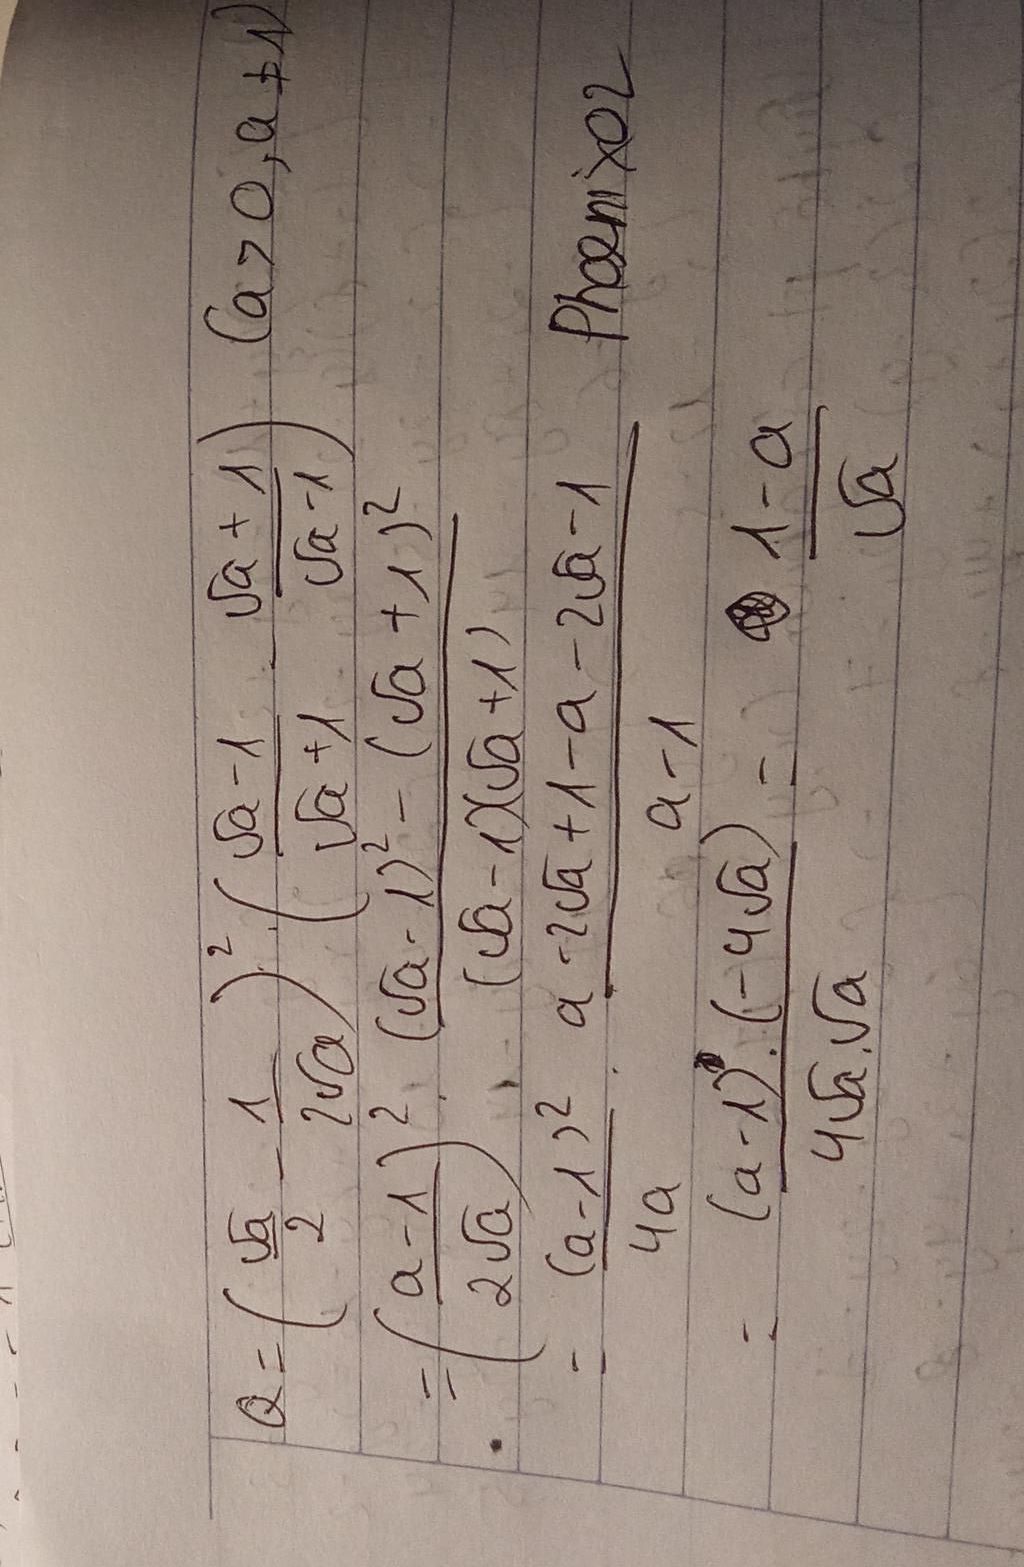 Q = (√a/2 - 1/2√a)² · (√a-1/√a+1 - √a+1/√a-1) (a > 0, a ≠ 1)
= (a-1/2√a)² · (√a-1)² - (√a+1)²/(√a-1)(√a+1)
= (a-1)²/4a · a-2√a+1-a-2√a-1/a-1 Phoenix02
= (a-1)·(-4√a)/4√a.√a = 1-a/√a